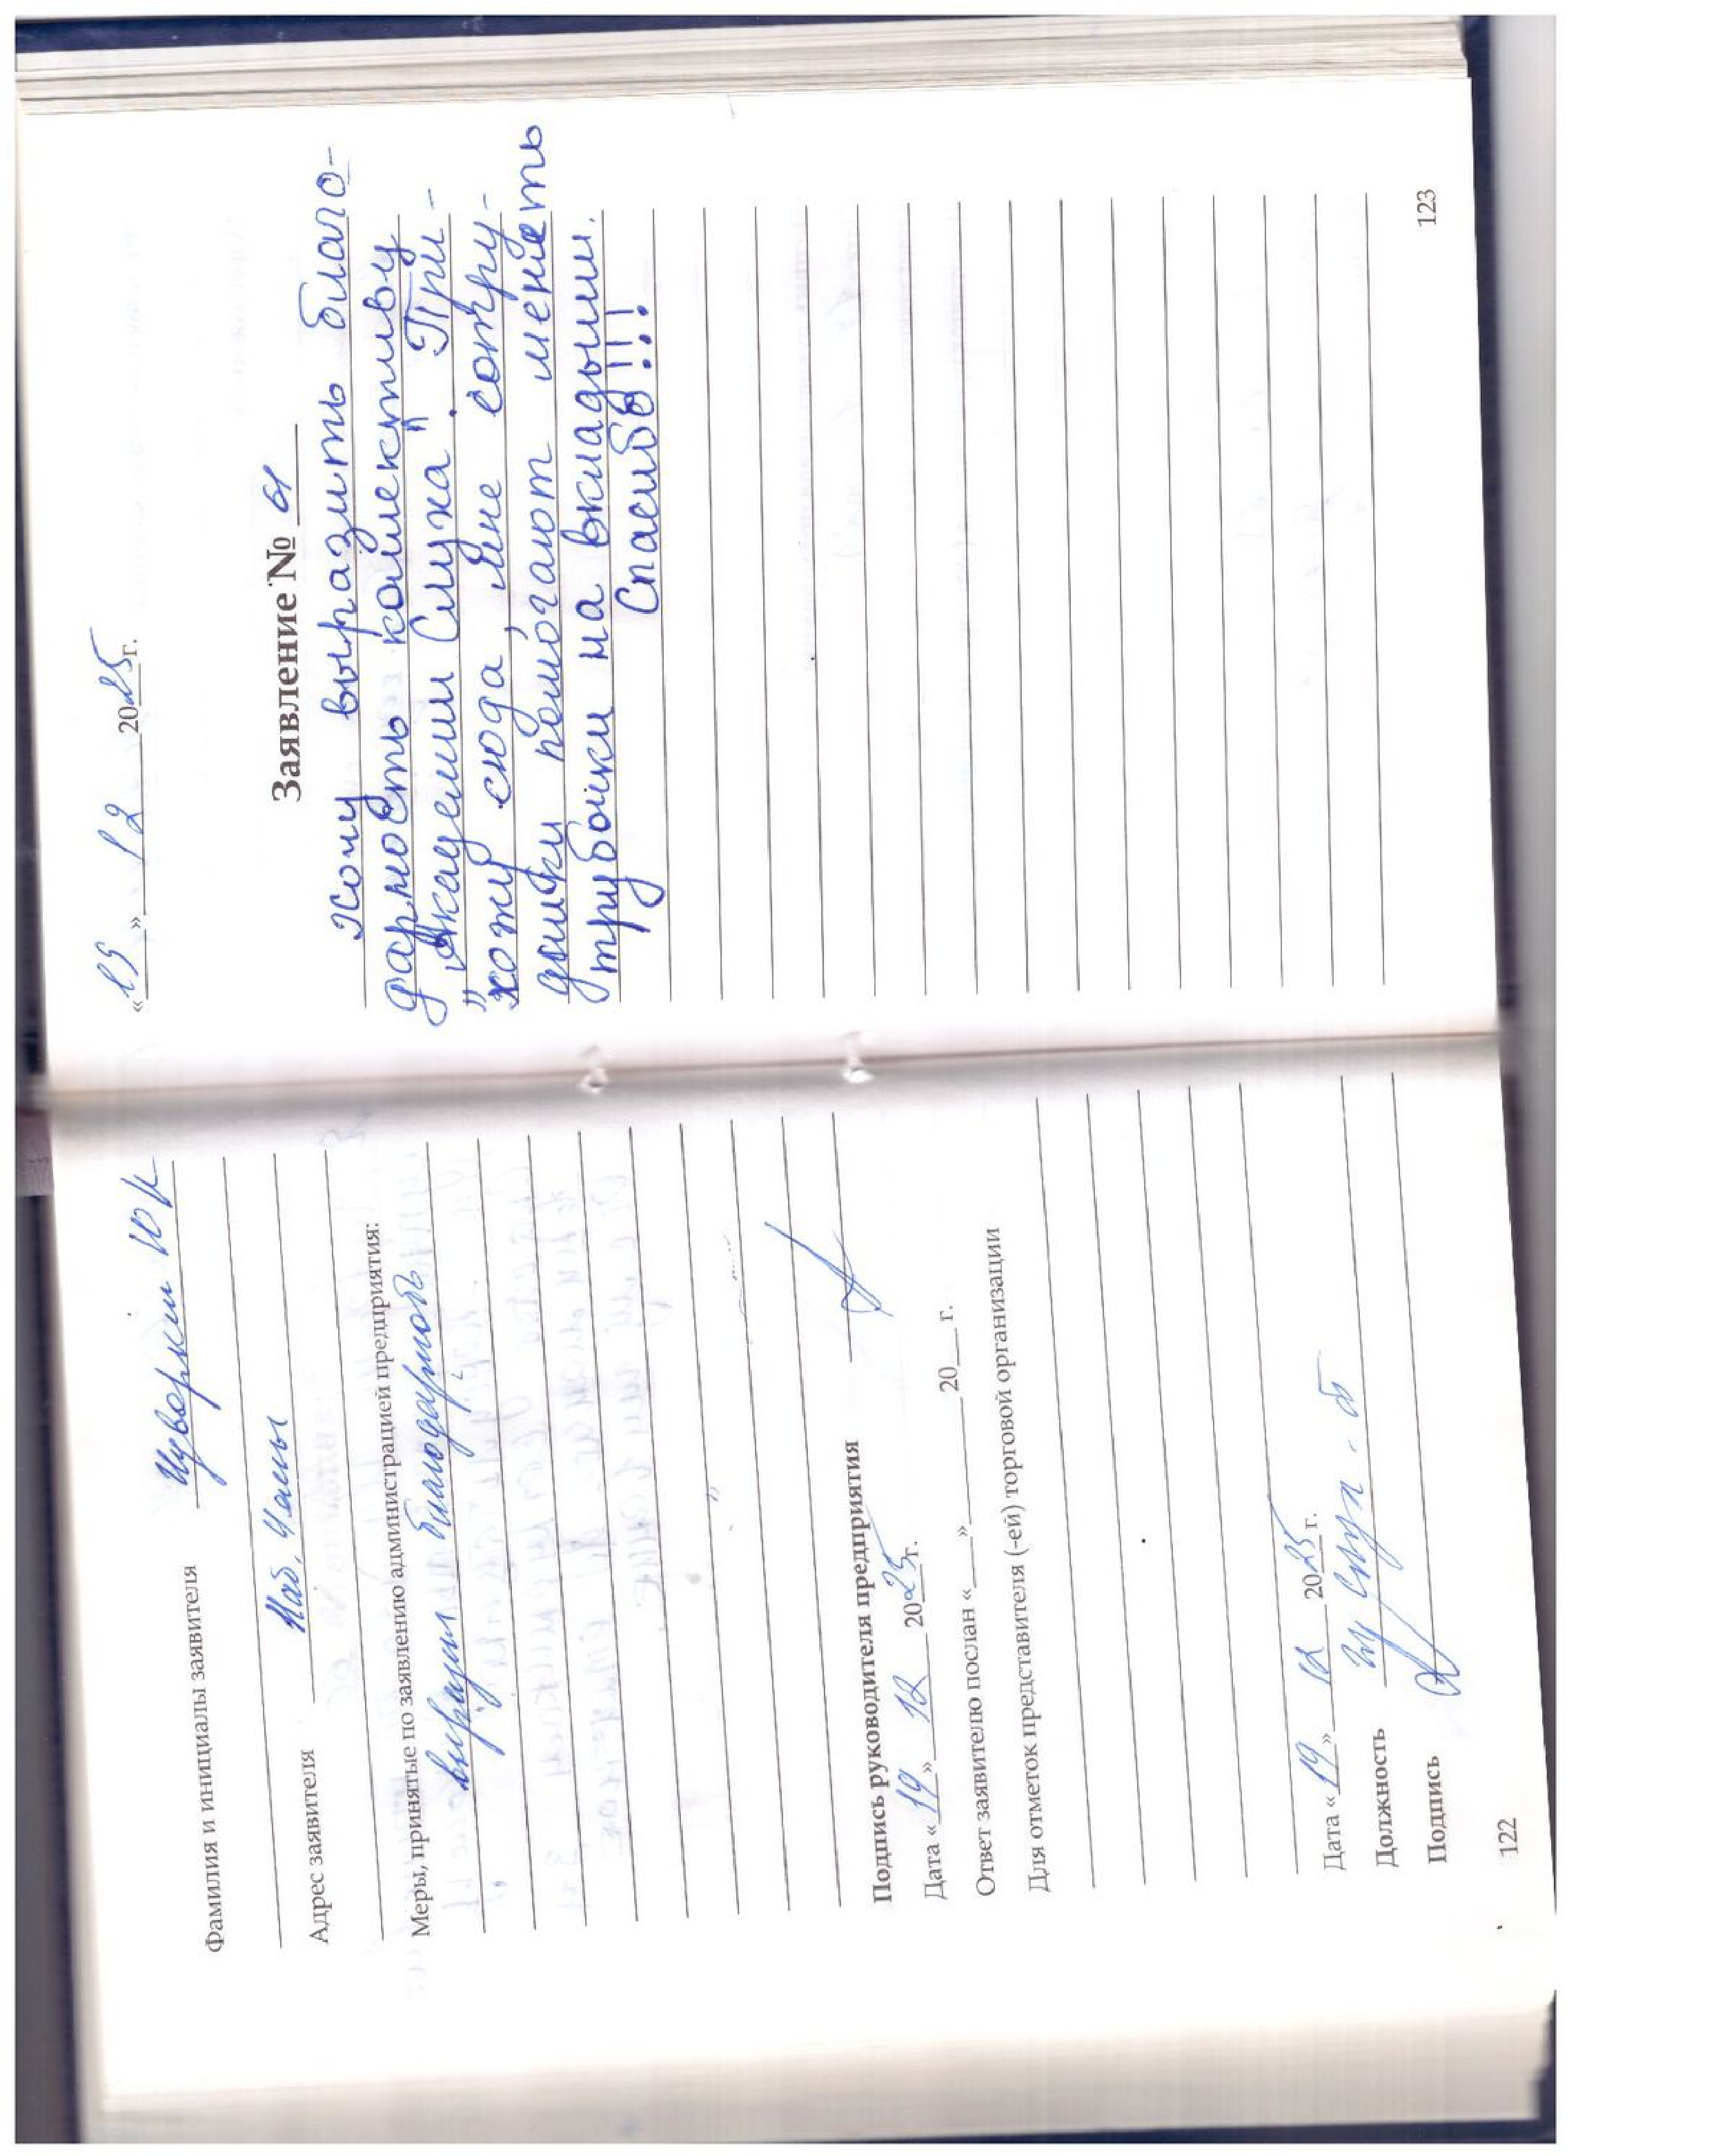 Фамилия и инициалы заявителя
Адрес заявителя Наб. Челны
Меры, принятые по заявлению администрацией предприятия:
благодарность
Подпись руководителя предприятия
Дата « 19 » 12 2025 г.
Ответ заявителю послан «___»________ 20___ г.
Для отметок представителя (-ей) торговой организации
Дата « 19 » 12 2025 г.
Должность
Подпись
122
12 2025 г.
Заявление № 61
Хочу выразить благо-
дарность коллективу
„Академии Слуха". При-
хожу сюда, мне сотру-
дники помогают менять
трубочки на вкладыши.
Спасибо!!!
123